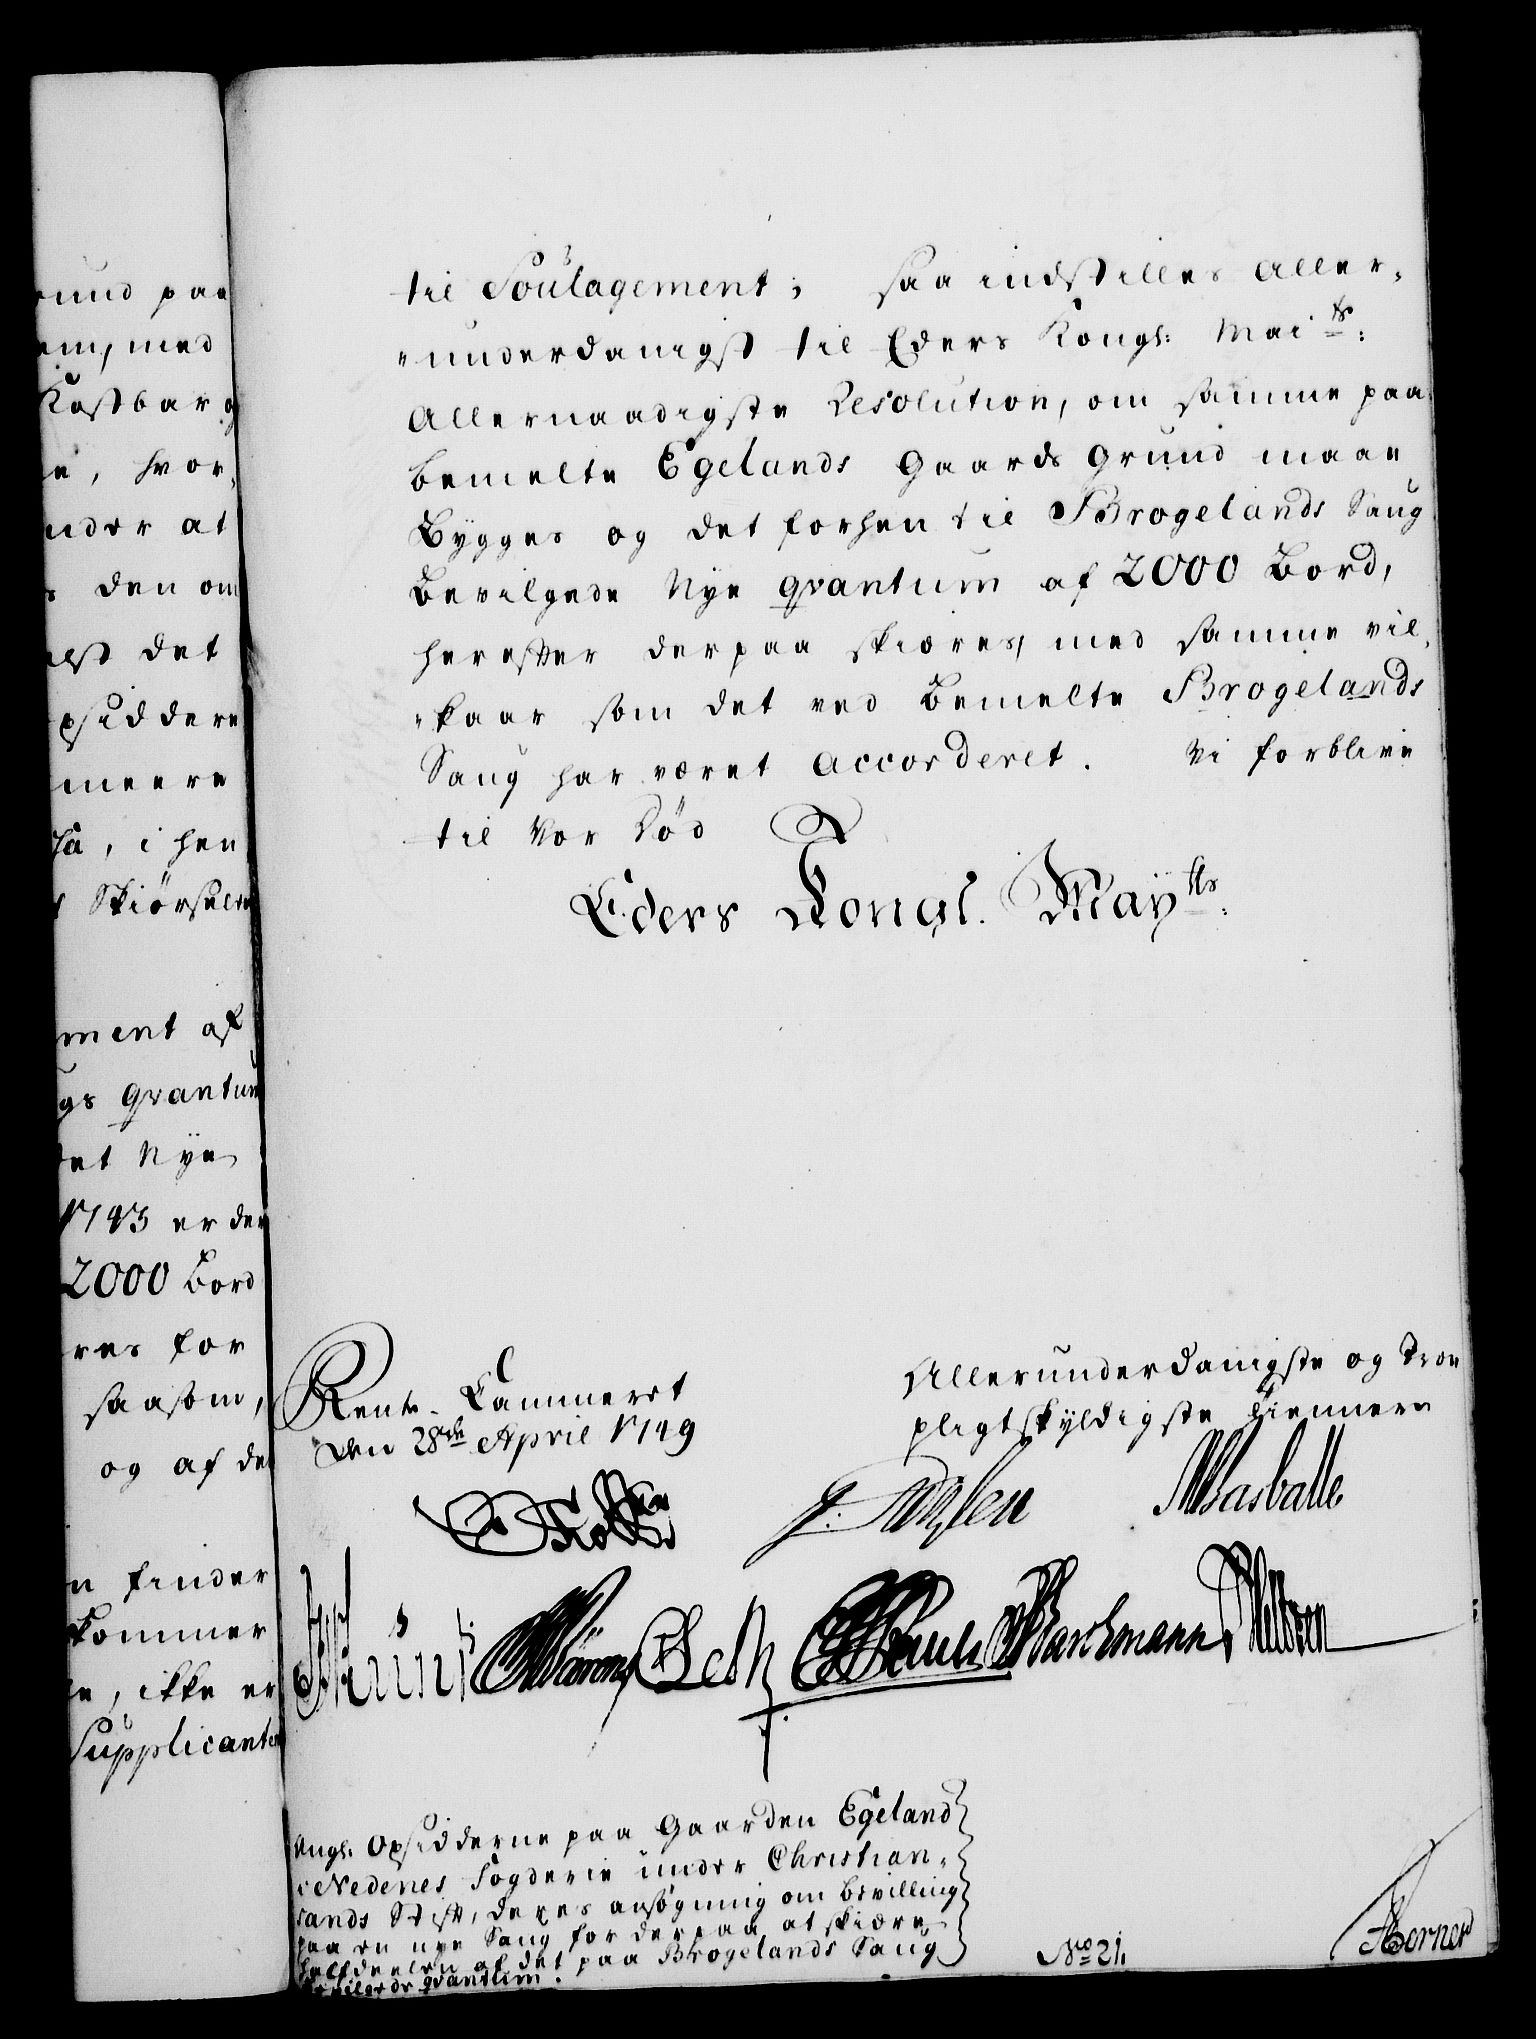 rund paa
em, med
Kostbar og
e, hvor,
under at
den om
elst det
psiddere
meere
i hen
Skiørsels
ment af
gs qvantum
det Nye
1743 er der
2000 Bord
res for
saasom,
og af de
n finder
kommer
e, ikke er
Supplicante
til Soulagement; saa indstilles aller-
-underdanigst til Eders Kongl: Mai.ts:
Allernaadigste Resolution, om samme paa
bemelte Egelands Gaards grund maae
Bygges og det forhen til Brogelands Saug
Bevilgede Nye qvantum af 2000 Bord,
herefter derpaa skiæres, med samme vil-
-kaar som det ved bemelte Brogelands
Saug har været accorderet. Vi forblive
til Vor Død
Eders Kongl. Mayts.
Rente-Cammeret
Den 28de April 1749
Allerunderdanigste og Troe
pligtskyldigste Tienere
Angl. Opsidderne paa Gaarden Egeland
i Nedenes Fogderie under Christian-
sands Stift, deres ansøgning om bevilling
paa en nye Saug for derpaa at skiære
halfdeelen af det paa Brogelands Saug
bevilgede qvantum.
No 21.